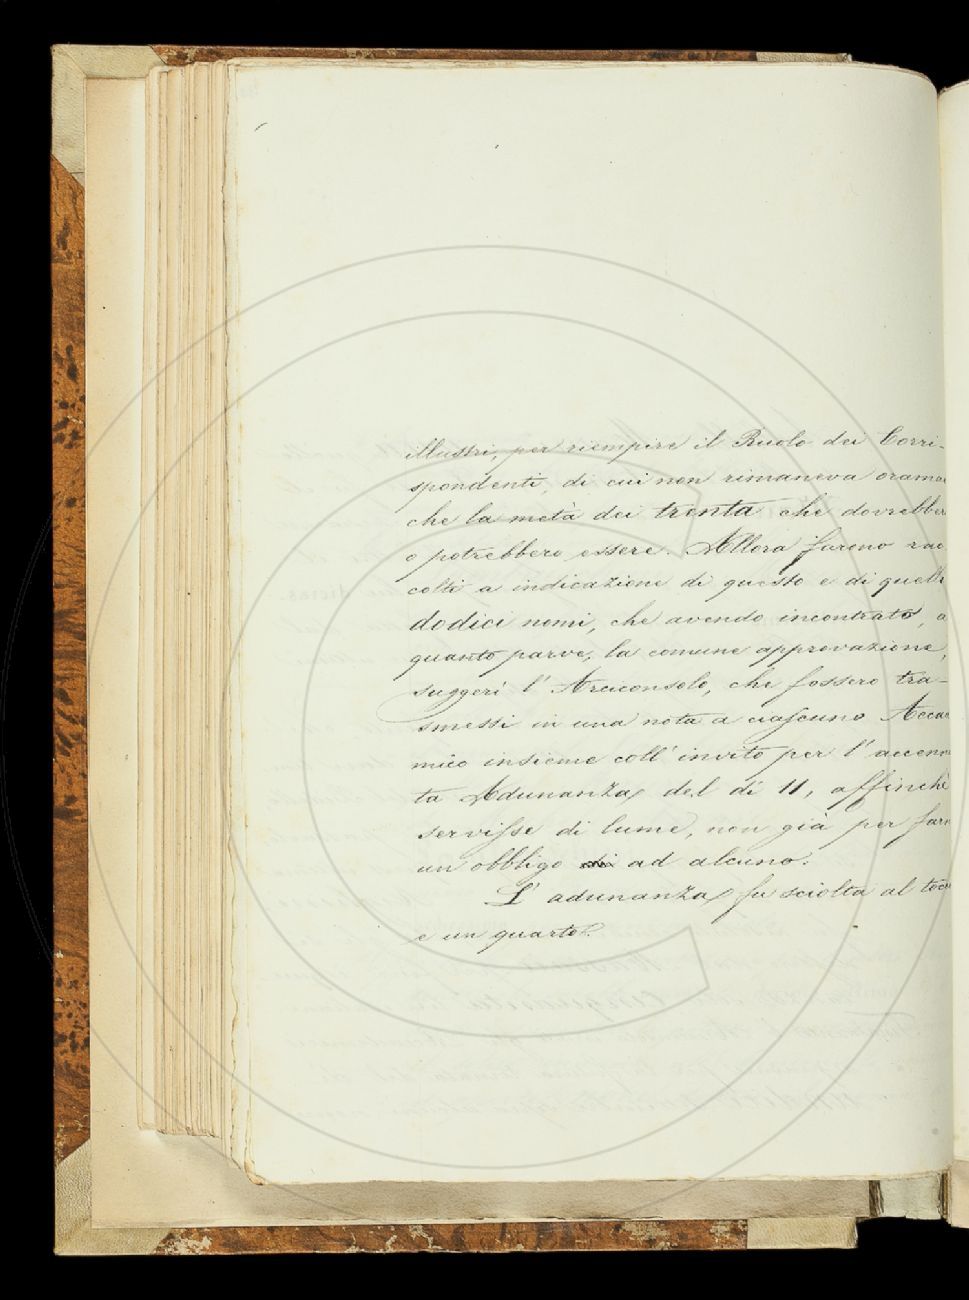 illustri, per riempire il Ruolo dei Corri-
spondenti, di cui non rimaneva orama
che la metà dei trenta che dovrebber
o potrebbero essere. Allora furono rac
colti a indicazione di questo e di quell
dodici nomi, che avendo incontrato, a
quanto parve, la comune approvazione,
suggerì l' Arciconsolo, che fossero tra-
smessi in una nota a ciascuno Acca
mico insieme coll' invito per l' accenn
ta Adunanza del dì 11, affinchè
servisse di lume, non già per farn
un obbligo ad alcuno.
L' adunanza fu sciolta al tocc
e un quarto.